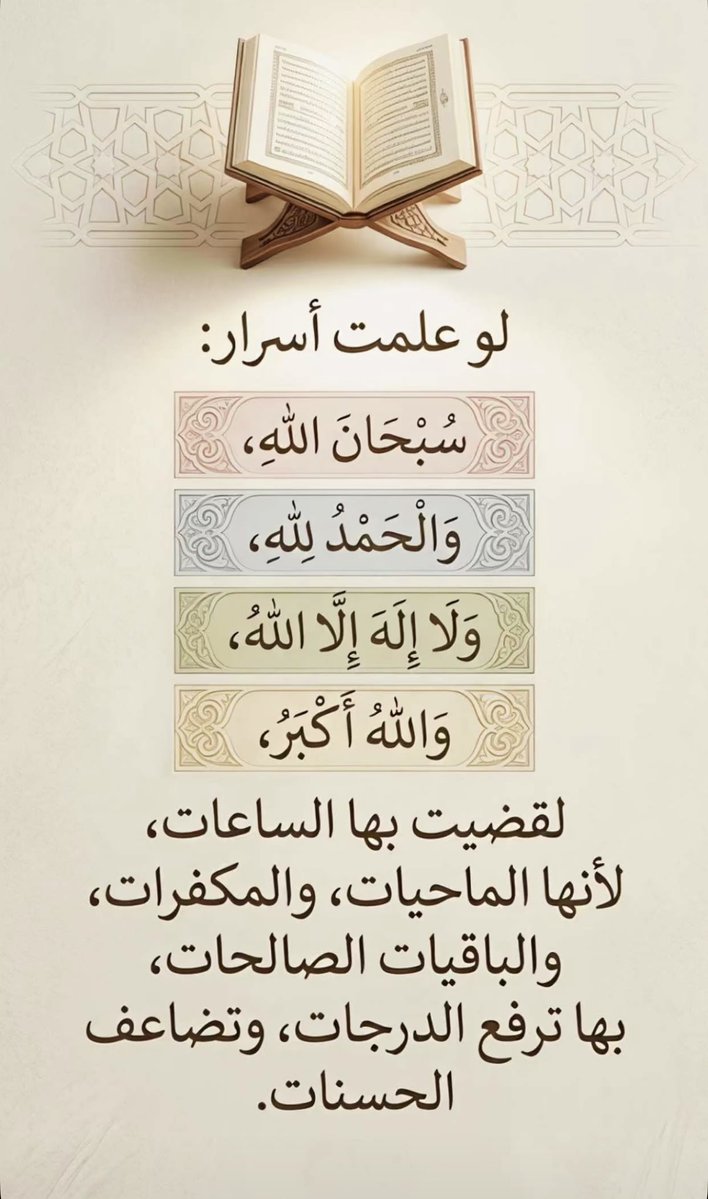 لو علمت أسرار:
سُبْحَانَ اللهِ،
وَالْحَمْدُ لِلهِ،
وَلَا إِلَهَ إِلَّا اللهُ،
وَاللهُ أَكْبَرُ،
لقضيت بها الساعات،
لأنها الماحيات، والمكفرات،
والباقيات الصالحات،
بها ترفع الدرجات، وتضاعف
الحسنات.